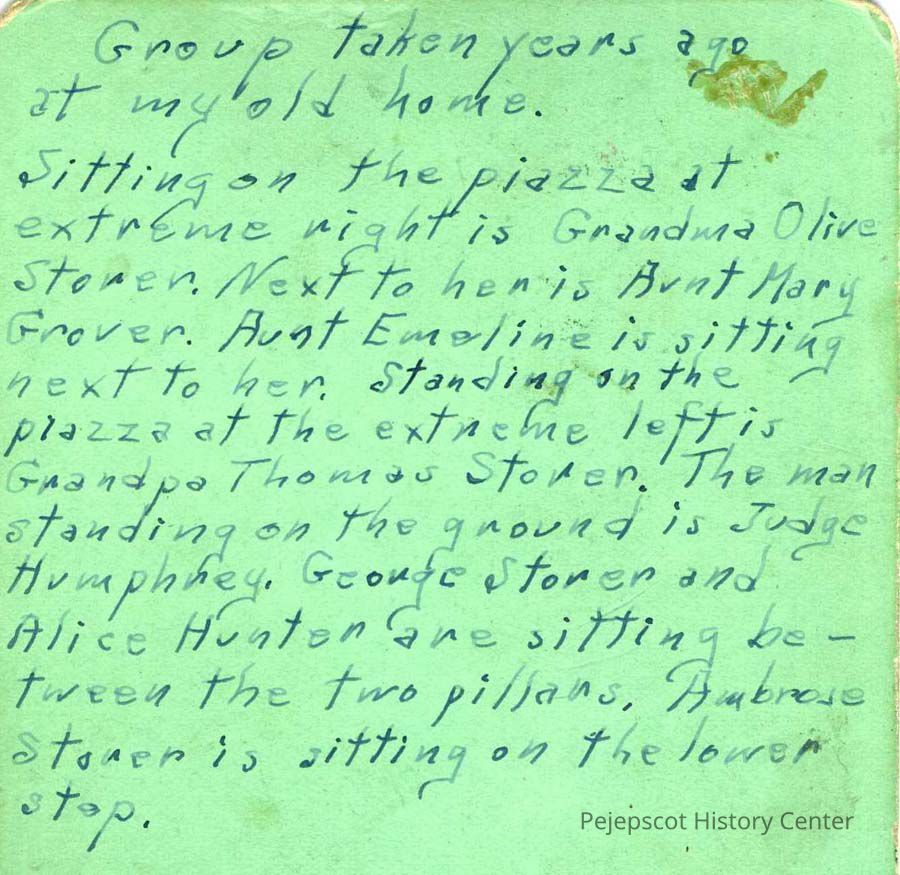 Group taken years ago
at my old home.
Sitting on the piazza at
extreme right is Grandma Olive
Storer. Next to her is Aunt Mary
Grover. Aunt Emeline is sitting
next to her. Standing on the
piazza at the extreme left is
Grandpa Thomas Storer. The man
standing on the ground is Judge
Humphrey. George Storer and
Alice Hunter are sitting be-
tween the two pillars. Ambrose
Storer is sitting on the lower
step.
Pejepscot History Center